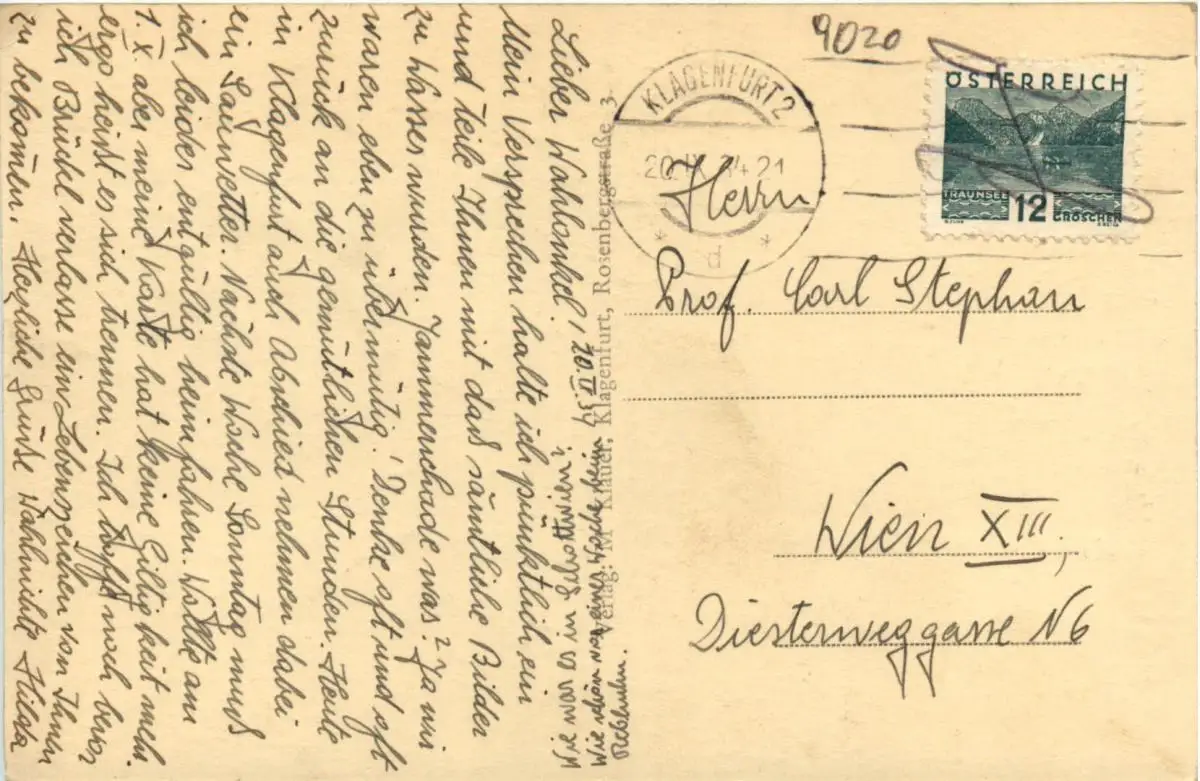 Lieber Wahlonkel! 20/IX 34
Mein Versprechen halte ich pünktlich ein
und teile Ihnen mit daß sämtliche Bilder
zu Wasser wurden. Jammerschade was? Ja wir
waren eben zu übermütig! Denke oft und oft
zurück an die gemütlichen Stunden. Heute
in Klagenfurt auch Abschied nehmen dabei
ein Sauwetter. Nächste Woche Sonntag muß
ich leider entgültig heimfahren. Wollte am
1. X. aber meine Karte hat keine Giltigkeit mehr
ergo heißt es sich trennen. Ich hoffe noch bevor
ich Brückl verlasse ein Lebenszeichen von Ihnen
zu bekomen. Herzliche Grüße Wahlnichte Hilda
Wie war es in
Wie schön war eine Woche beim
Rebhuhn.
Verlag: M. Klauer, Klagenfurt, Rosenbergstraße 3
9020
KLAGENFURT 2
20.IX.34 21
* d *
ÖSTERREICH
TRAUNSEE
12
GROSCHEN
Herrn
Prof. Carl Stephan
Wien XIII,
Diesterweggasse N6